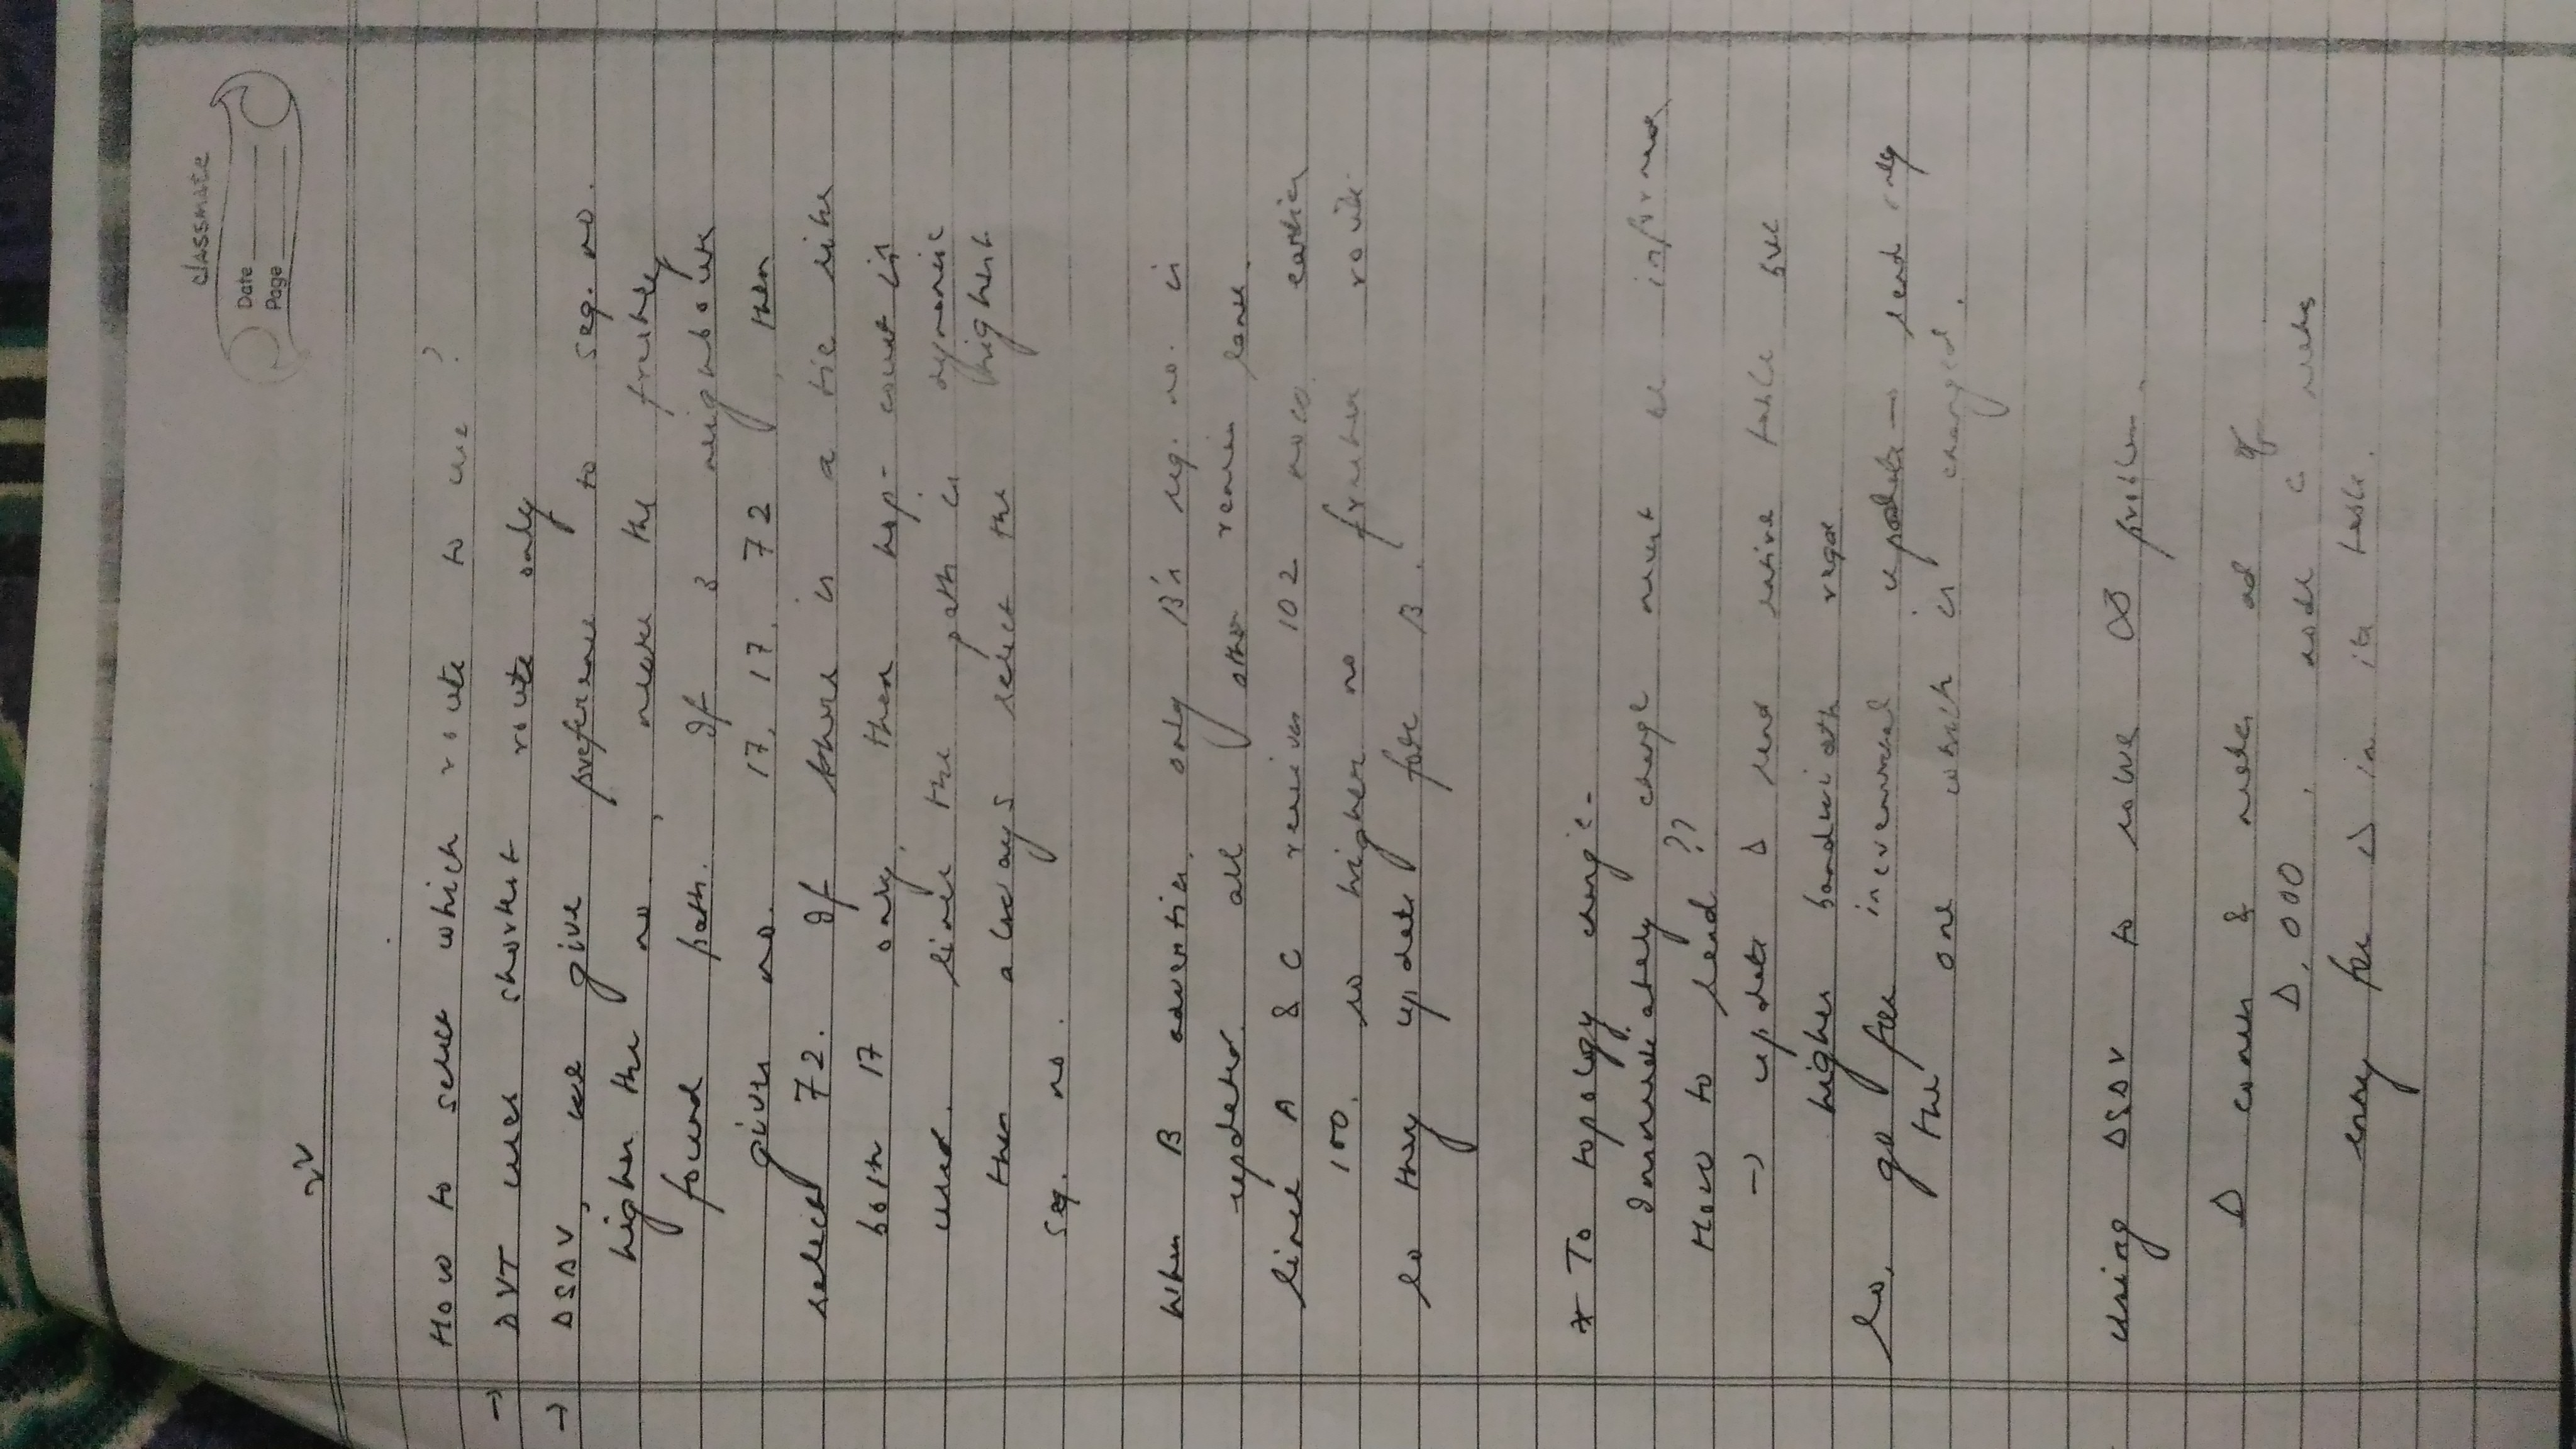 classmate
Date
Page
22
How to select which route to use ?
→ DVT uses shortest route only
→ DSDV, we give preference to seq. no.
higher the no., more the freshly
found path. If 3 neighbours
gives no. 17, 17, 72, then
select 72. If there is a tie like
both 17 only, then hop-count is
used. Since the path is dynamic
then always select the highest
seq. no.
When B advertise, only B's seq. no. is
updated. all other remain same.
Since A & C receives 102 now, earlier
100, so higher no fresher route
So they update for B.
* To topology change -
Immediately change must be informed
How to send ??
→ update & send entire table but
higher bandwidth reqd
So, go for incremental update → send only
the one which is changed.
Using DSDV to solve ∞ problem.
D comes & makes ad of
D, 000, node C makes
entry for D in its table.